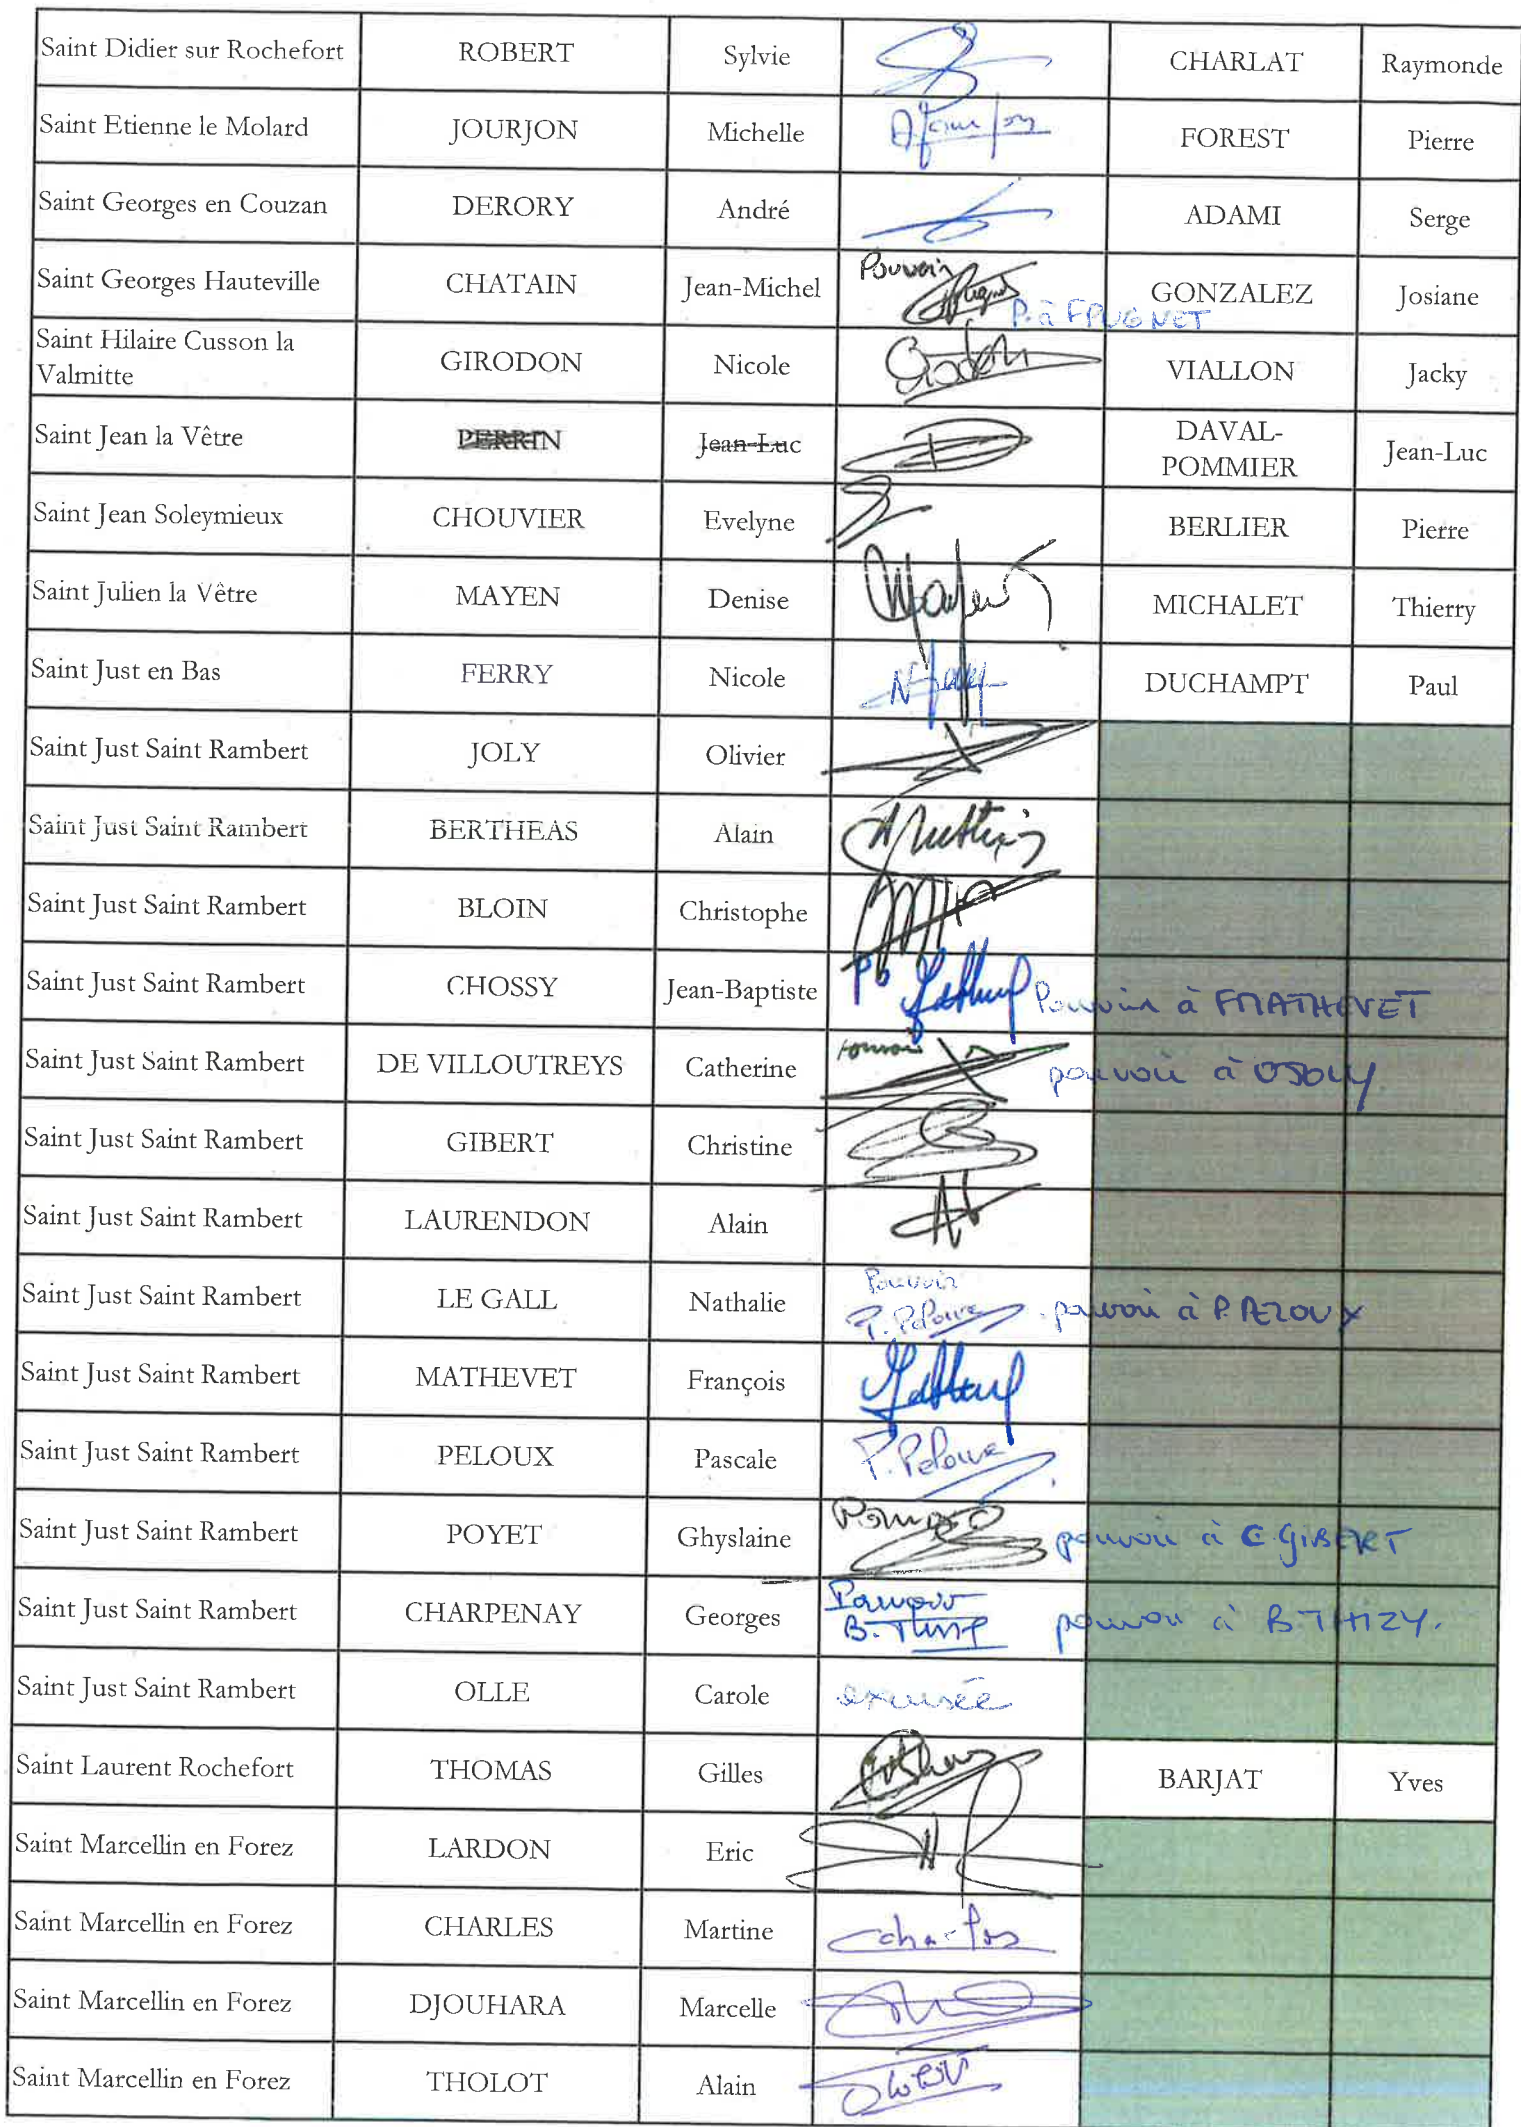 Saint Didier sur Rochefort ROBERT Sylvie CHARLAT Raymonde
Saint Etienne le Molard JOURJON Michelle FOREST Pierre
Saint Georges en Couzan DERORY André ADAMI Serge
Saint Georges Hauteville CHATAIN Jean-Michel Pouvoir P. à F PUGNET GONZALEZ Josiane
Saint Hilaire Cusson la
Valmitte GIRODON Nicole VIALLON Jacky
Saint Jean la Vêtre PERRIN Jean-Luc DAVAL-
POMMIER Jean-Luc
Saint Jean Soleymieux CHOUVIER Evelyne BERLIER Pierre
Saint Julien la Vêtre MAYEN Denise MICHALET Thierry
Saint Just en Bas FERRY Nicole DUCHAMPT Paul
Saint Just Saint Rambert JOLY Olivier
Saint Just Saint Rambert BERTHEAS Alain
Saint Just Saint Rambert BLOIN Christophe
Saint Just Saint Rambert CHOSSY Jean-Baptiste Pouvoir à F MATHEVET
Saint Just Saint Rambert DE VILLOUTREYS Catherine pouvoir à O JOLY
Saint Just Saint Rambert GIBERT Christine
Saint Just Saint Rambert LAURENDON Alain
Saint Just Saint Rambert LE GALL Nathalie Pouvoir P. Peloux pouvoir à P. PELOUX
Saint Just Saint Rambert MATHEVET François
Saint Just Saint Rambert PELOUX Pascale P. Peloux
Saint Just Saint Rambert POYET Ghyslaine Pouvoir pouvoir à C. GIBERT
Saint Just Saint Rambert CHARPENAY Georges Pouvoir B. Thizy pouvoir à B. THIZY.
Saint Just Saint Rambert OLLE Carole excusée
Saint Laurent Rochefort THOMAS Gilles BARJAT Yves
Saint Marcellin en Forez LARDON Eric
Saint Marcellin en Forez CHARLES Martine Charles
Saint Marcellin en Forez DJOUHARA Marcelle
Saint Marcellin en Forez THOLOT Alain